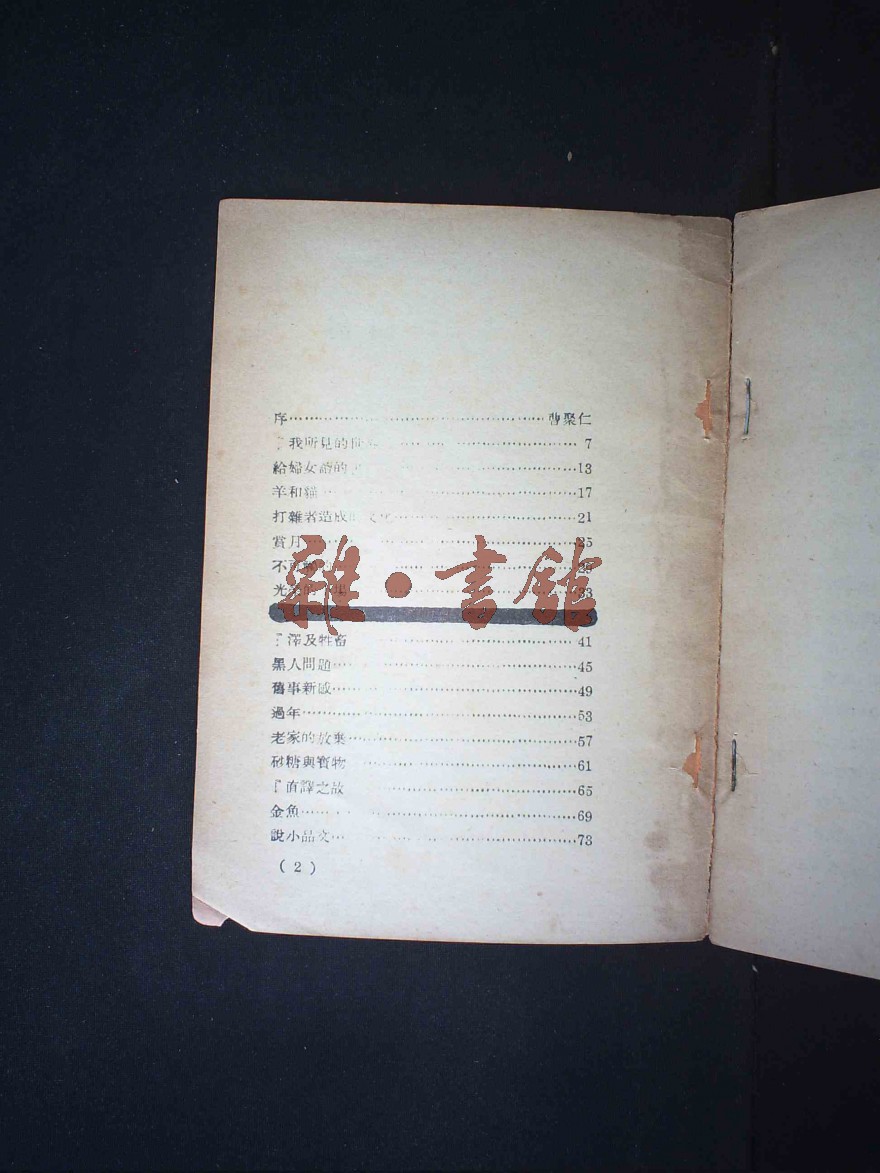 序……曹聚仁
我所見的……7
給婦女讀的……13
羊和貓……17
打雜者造成的文化……21
賞月……25
不……29
光……33
澤及牲畜……41
黑人問題……45
舊事新感……49
過年……53
老家的放棄……57
砂糖與寶物……61
「直譯之故……65
金魚……69
說小品文……73
(2)
雜·書館